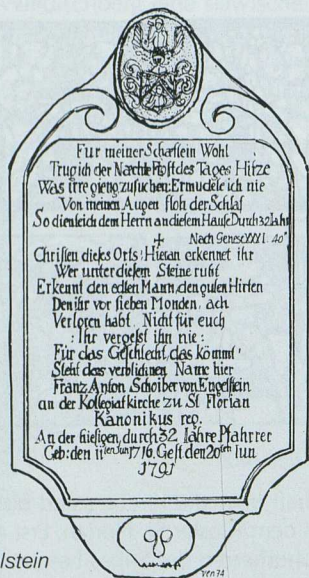 Für meiner Schæflein Wohl
Trug ich der Næchte Frost des Tages Hitze
Was irre gieng zu suchen: Ermüdete ich nie
Von meinen Augen floh der Schlaf
So diente ich dem Herrn an diesem Hause Durch 32 Jahr
+ Nach Genes XXXI. 40
Christen dieses Orts! Hieran erkennet ihr
Wer unter diesem Steine ruht
Erkennt den edlen Mann, den guten Hirten
Den ihr vor sieben Monden, ach
Verloren habt. Nicht für euch
: Ihr vergeßt ihn nie :
Für das Geschlecht, das kömmt,
Steht des verblichnen Name hier
Franz Anton Schoiber von Engelstein
an der Kollegiatkirche zu St Florian
Kanonikus reg.
An der hiesigen, durch 32 Jahre Pfahrrer
Geb: den 11ten Jun 1716. Gest den 20sten Jun
1791
lstein